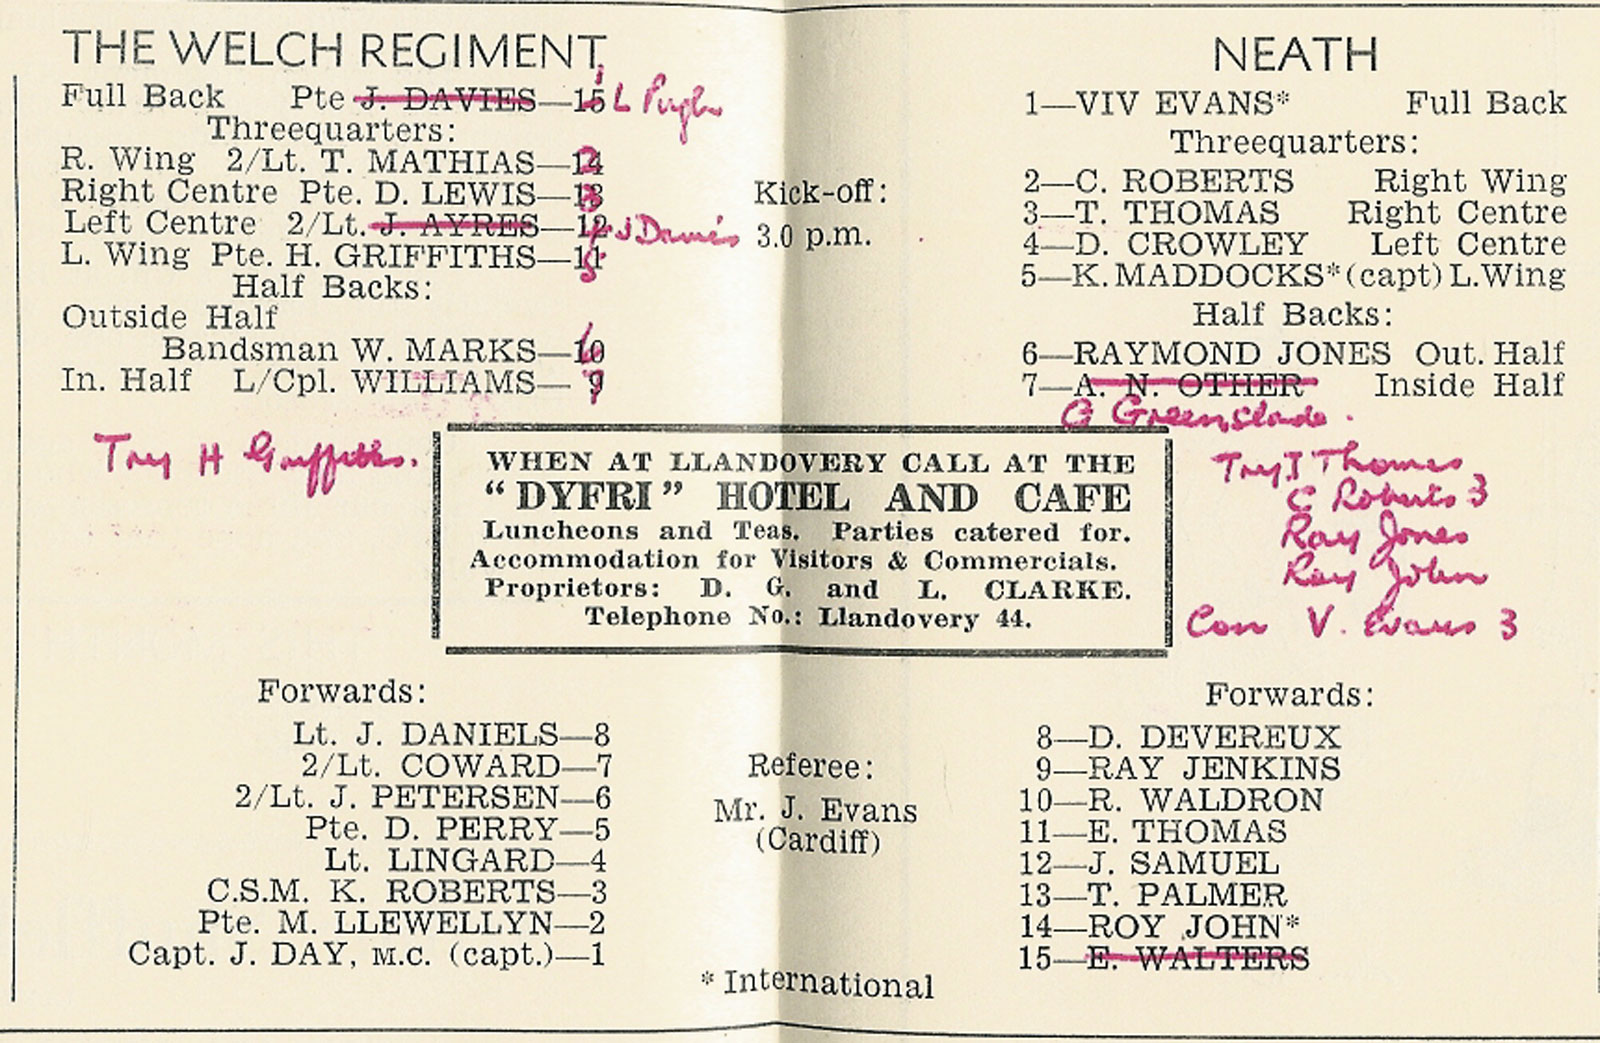 THE WELCH REGIMENT
Full Back Pte J. DAVIES—15 L Pugh
Threequarters:
R. Wing 2/Lt. T. MATHIAS—14 2
Right Centre Pte. D. LEWIS—13 3
Left Centre 2/Lt. J. AYRES—12 4 J Davies
L. Wing Pte. H. GRIFFITHS—11 5
Half Backs:
Outside Half
Bandsman W. MARKS—10 6
In. Half L/Cpl. WILLIAMS—9 7
Try H Griffiths.
Kick-off:
3.0 p.m.
NEATH
1—VIV EVANS* Full Back
Threequarters:
2—C. ROBERTS Right Wing
3—T. THOMAS Right Centre
4—D. CROWLEY Left Centre
5—K. MADDOCKS* (capt) L.Wing
Half Backs:
6—RAYMOND JONES Out. Half
7—A. N. OTHER Inside Half
G Greenslade.
Try T Thomas
C Roberts 3
Ray Jones
Roy John
Con V. Evans 3
WHEN AT LLANDOVERY CALL AT THE
“DYFRI” HOTEL AND CAFE
Luncheons and Teas. Parties catered for.
Accommodation for Visitors & Commercials.
Proprietors: D. G. and L. CLARKE.
Telephone No.: Llandovery 44.
Forwards:
Lt. J. DANIELS—8
2/Lt. COWARD—7
2/Lt. J. PETERSEN—6
Pte. D. PERRY—5
Lt. LINGARD—4
C.S.M. K. ROBERTS—3
Pte. M. LLEWELLYN—2
Capt. J. DAY, M.C. (capt.)—1
Referee:
Mr. J. Evans
(Cardiff)
* International
Forwards:
8—D. DEVEREUX
9—RAY JENKINS
10—R. WALDRON
11—E. THOMAS
12—J. SAMUEL
13—T. PALMER
14—ROY JOHN*
15—E. WALTERS